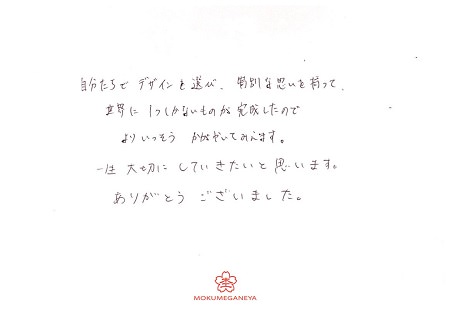 自分たちで デザインを選び、特別な思いを持って、
世界に 1つしかないものが完成したので
よりいっそう かがやいてみえます。
一生 大切に していきたいと思います。
ありがとう ございました。
MOKUMEGANEYA